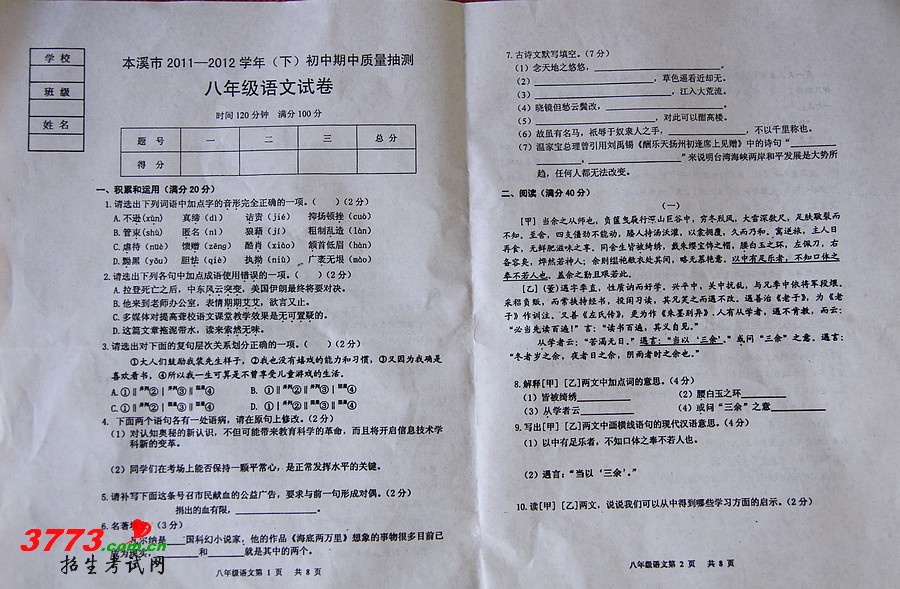 学校
班级
姓名
本溪市2011—2012学年（下）初中期中质量抽测
八年级语文试卷
时间120分钟 满分100分
题号 一 二 三 总分
得分
一、积累和运用（满分20分）
1.请选出下列词语中加点字的音形完全正确的一项。（ ）（2分）
A.不逊(xùn) 真缔(dì) 诘责(jié) 抑扬顿挫(cuò)
B.管束(shù) 匿名(nì) 狼藉(jí) 粗制乱造(làn)
C.虐待(nüè) 馈赠(zèng) 酷肖(xiào) 颔首低眉(hàn)
D.黝黑(yǒu) 胆怯(qiè) 执拗(niù) 广袤无垠(mào)
2.请选出下列各句中加点成语使用错误的一项。（ ）（2分）
A.拉登死亡之后，中东风云突变，美国伊朗最终将要对决。
B.他来到老师办公室，表情期期艾艾，欲言又止。
C.多媒体对提高我校语文课堂教学效果是无可置疑的。
D.这篇文章拖泥带水，读来索然无味。
3.请选出对下面的复句层次关系划分正确的一项。（ ）（2分）
①大人们鼓励我装先生样子，②我也没有嬉戏的能力和习惯，③又因为我确是
喜欢看书，④所以我一生可算是不曾享受儿童游戏的生活。
4. 下面两个语句各有一处语病，请在原句上修改。（2分）
（1）对认知奥秘的新认识，不但可能带来教育科学的革命，而且将开启信息技术学
科新的变革。
（2）同学们在考场上能否保持一颗平常心，是正常发挥水平的关键。
5.请补写下面这条号召市民献血的公益广告，要求与前一句形成对偶。（2分）
捐出的血有限，
6.名著 （3分）
凡尔纳是 国科幻小说家，他的作品《海底两万里》想象的事物很多目前已
和 就是其中的两个。
3773.com.cn
招生考试网
八年级语文第1页 共8页
7.古诗文默写填空。（7分）
（1）念天地之悠悠， 。
（2） ，草色遥看近却无。
（3） ，江入大荒流。
（4）晓镜但愁云鬓改， 。
（5） ，对此可以酣高楼。
（6）故虽有名马，祇辱于奴隶人之手， ，不以千里称也。
（7）温家宝总理曾引用刘禹锡《酬乐天扬州初逢席上见赠》中的诗句“
， ”来说明台湾海峡两岸和平发展是大势所
趋，任何人都无法改变。
二、阅读（满分40分）
（一）
[甲] 当余之从师也，负箧曳屣行深山巨谷中，穷冬烈风，大雪深数尺，足肤皲裂而
不知。至舍，四支僵劲不能动，媵人持汤沃灌，以衾拥覆，久而乃和。寓逆旅，主人日
再食，无鲜肥滋味之享。同舍生皆被绮绣，戴朱缨宝饰之帽，腰白玉之环，左佩刀，右
备容臭，烨然若神人；余则缊袍敝衣处其间，略无慕艳意。以中有足乐者，不知口体之
奉不若人也。盖余之勤且艰若此。
[乙]（董）遇字季直，性质讷而好学。兴平中，关中扰乱，与兄季中依将军段煨。
采稆负贩，而常挟持经书，投闲习读，其兄笑之而遇不改。遇善治《老子》，为《老
子》作训注。又善《左氏传》，更为作《朱墨别异》。人有从学者，遇不肯教，而云：
“必当先读百遍！”言：“读书百遍，其义自见。”
从学者云：“苦渴无日。”遇言：“当以‘三余’。”或问“三余”之意。遇言：
“冬者岁之余，夜者日之余，阴雨者时之余也。”
8.解释[甲][乙]两文中加点词的意思。（4分）
（1）皆被绮绣 （2）腰白玉之环
（3）从学者云 （4）或问“三余”之意
9.写出[甲][乙]两文中画横线语句的现代汉语意思。（4分）
（1）以中有足乐者，不知口体之奉不若人也。
（2）遇言：“当以‘三余’。”
10.读[甲][乙]两文，说说我们可以从中得到哪些学习方面的启示。（2分）
八年级语文第2页 共8页